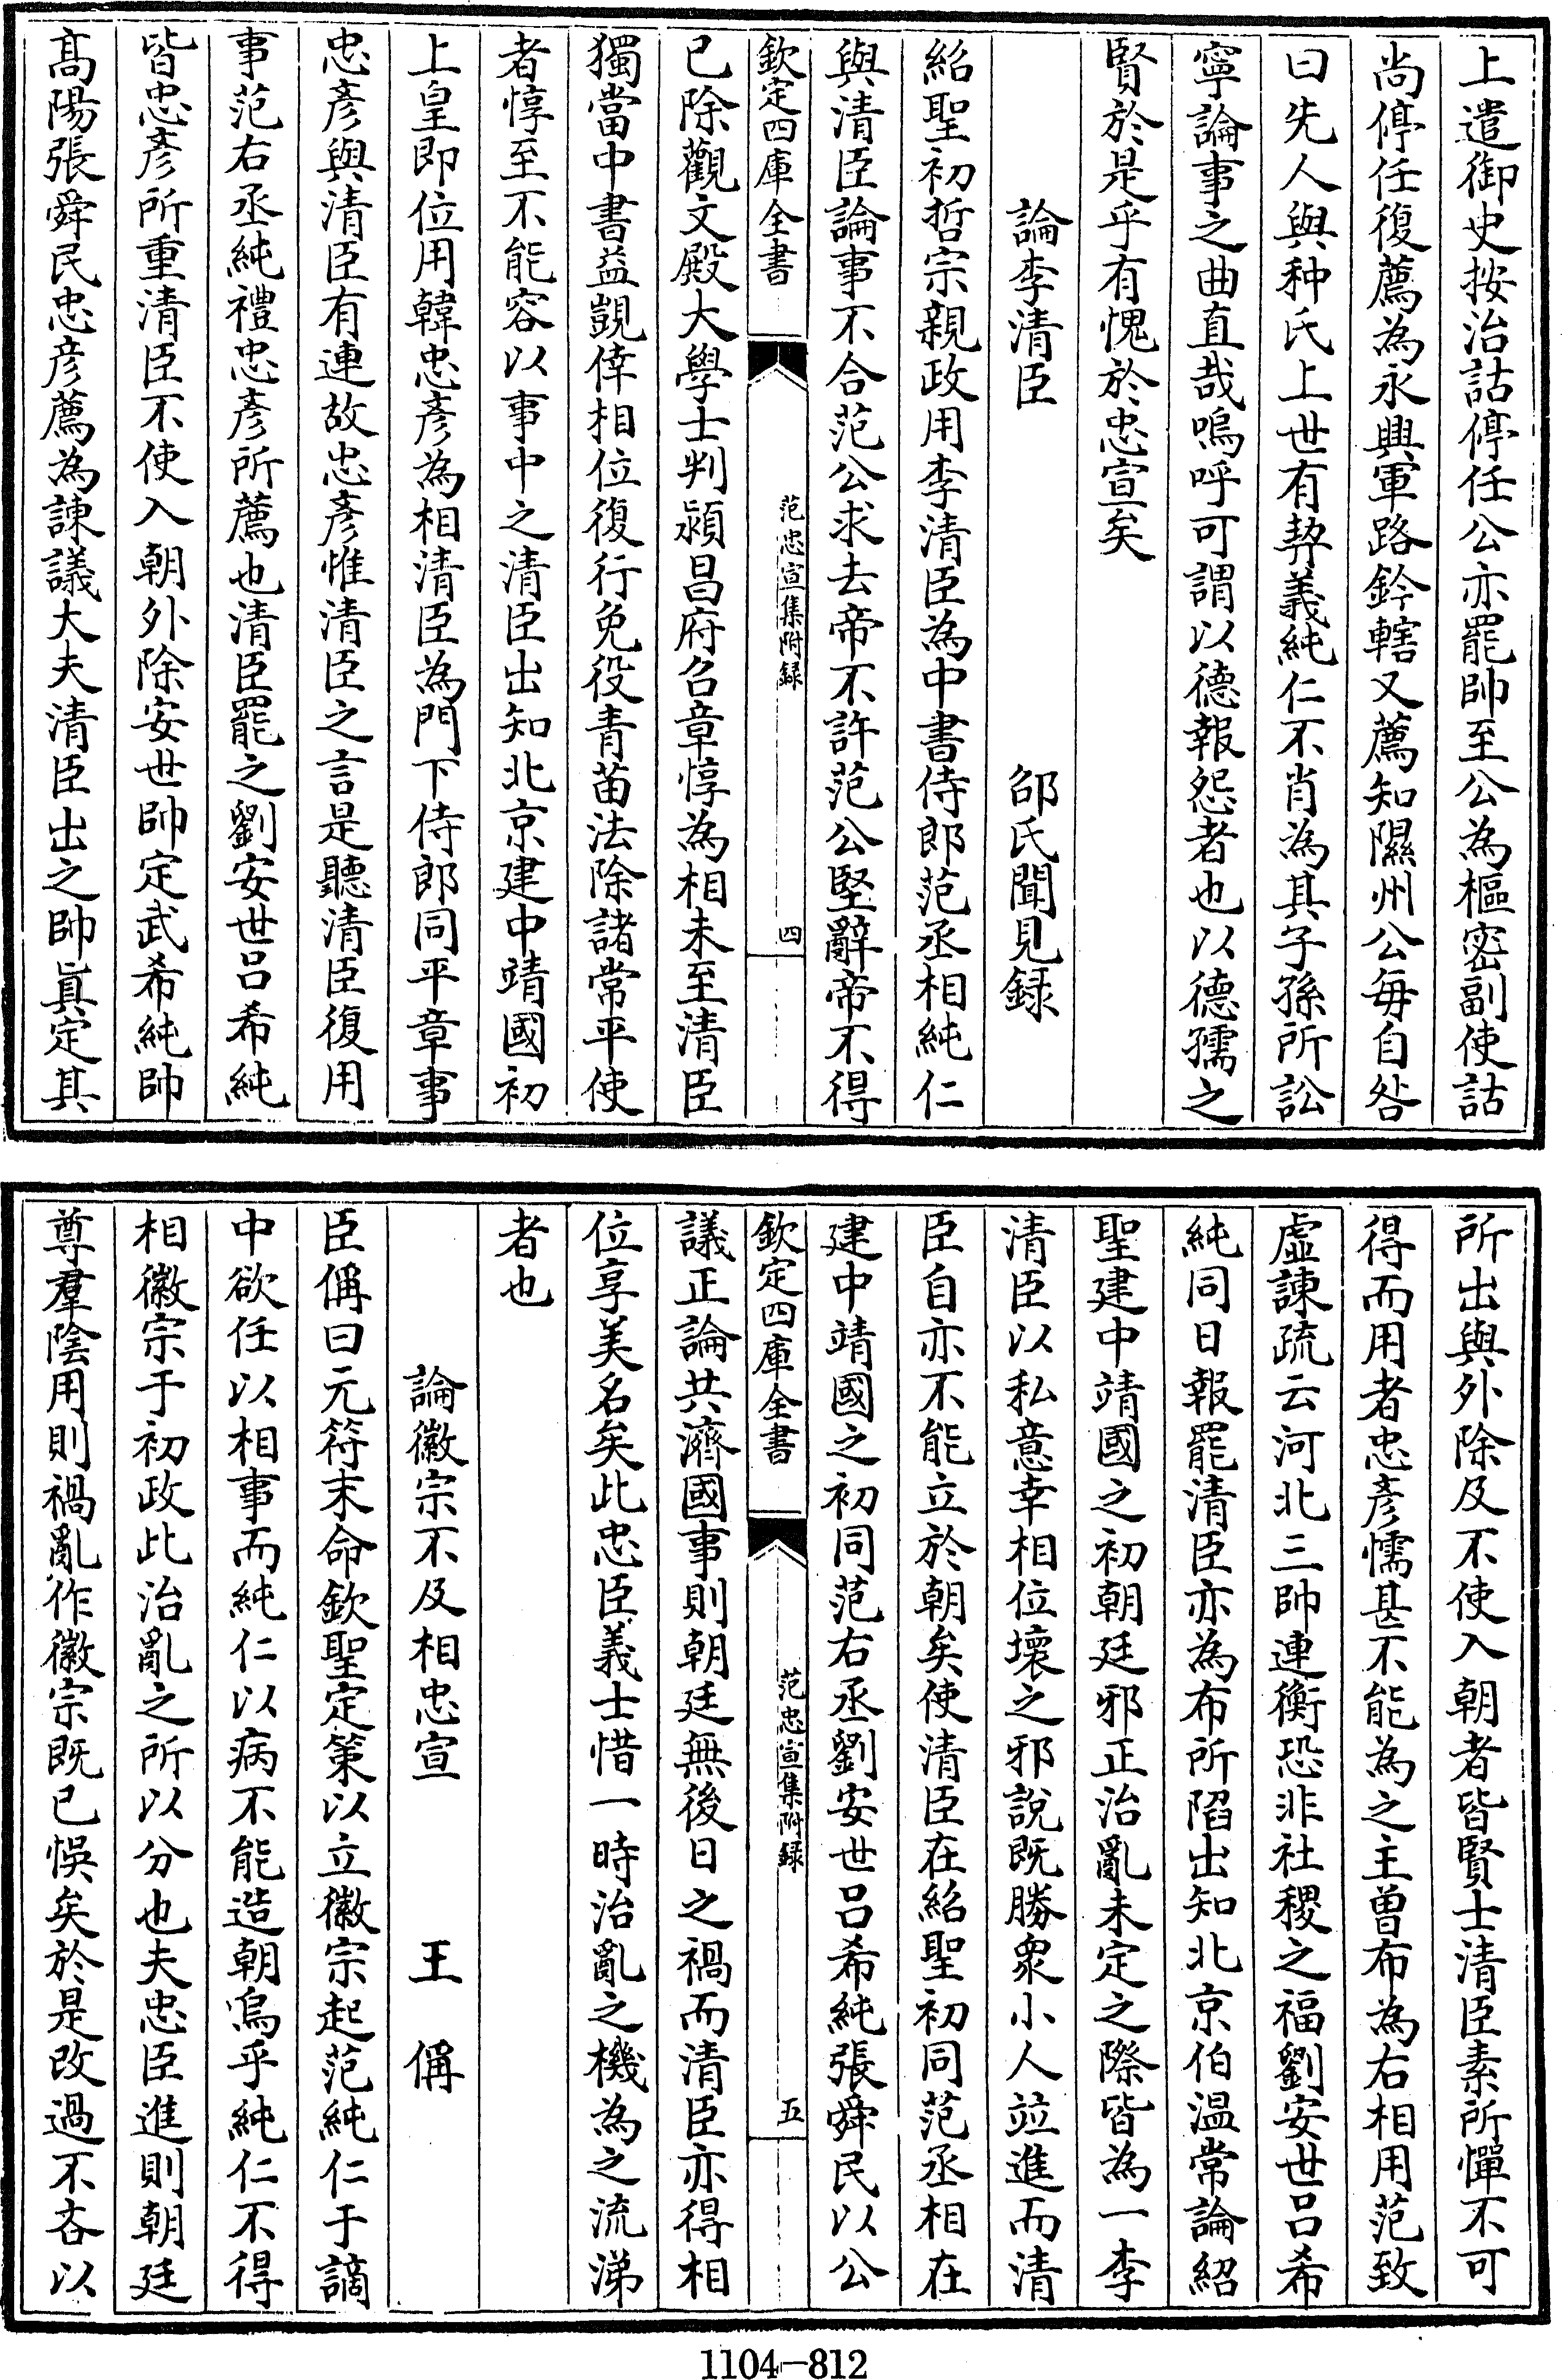 上遣御史按治詁停任公亦罷帥至公為樞密副使詁
尚停任復薦為永興軍路鈐轄又薦知隰州公每自咎
曰先人與种氏上世有契義純仁不肖為其子孫所訟
寧論事之曲直哉嗚呼可謂以德報怨者也以德孺之
賢於是乎有愧於忠宣矣
論李清臣 邵氏聞見録
紹聖初哲宗親政用李清臣為中書侍郎范丞相純仁
與清臣論事不合范公求去帝不許范公堅辭帝不得
欽定四庫全書 范忠宣集附録 四
已除觀文殿大學士判潁昌府召章惇為相未至清臣
獨當中書益覬倖相位復行免役青苗法除諸常平使
者惇至不能容以事中之清臣出知北京建中靖國初
上皇即位用韓忠彥為相清臣為門下侍郎同平章事
忠彥與清臣有連故忠彥惟清臣之言是聽清臣復用
事范右丞純禮忠彥所薦也清臣罷之劉安世呂希純
皆忠彥所重清臣不使入朝外除安世帥定武希純帥
髙陽張舜民忠彥薦為諫議大夫清臣出之帥眞定其
所出與外除及不使入朝者皆賢士清臣素所憚不可
得而用者忠彥懦甚不能為之主曾布為右相用范致
虛諫疏云河北三帥連衡恐非社稷之福劉安世呂希
純同日報罷清臣亦為布所陷出知北京伯温常論紹
聖建中靖國之初朝廷邪正治亂未定之際皆為一李
清臣以私意幸相位壞之邪説既勝衆小人竝進而清
臣自亦不能立於朝矣使清臣在紹聖初同范丞相在
建中靖國之初同范右丞劉安世呂希純張舜民以公
欽定四庫全書 范忠宣集附録 五
議正論共濟國事則朝廷無後日之禍而清臣亦得相
位享美名矣此忠臣義士惜一時治亂之機為之流涕
者也
論徽宗不及相忠宣 王偁
臣偁曰元符末命欽聖定策以立徽宗起范純仁于謫
中欲任以相事而純仁以病不能造朝嗚乎純仁不得
相徽宗于初政此治亂之所以分也夫忠臣進則朝廷
尊羣陰用則禍亂作徽宗既已悞矣於是改過不吝以
1104-812